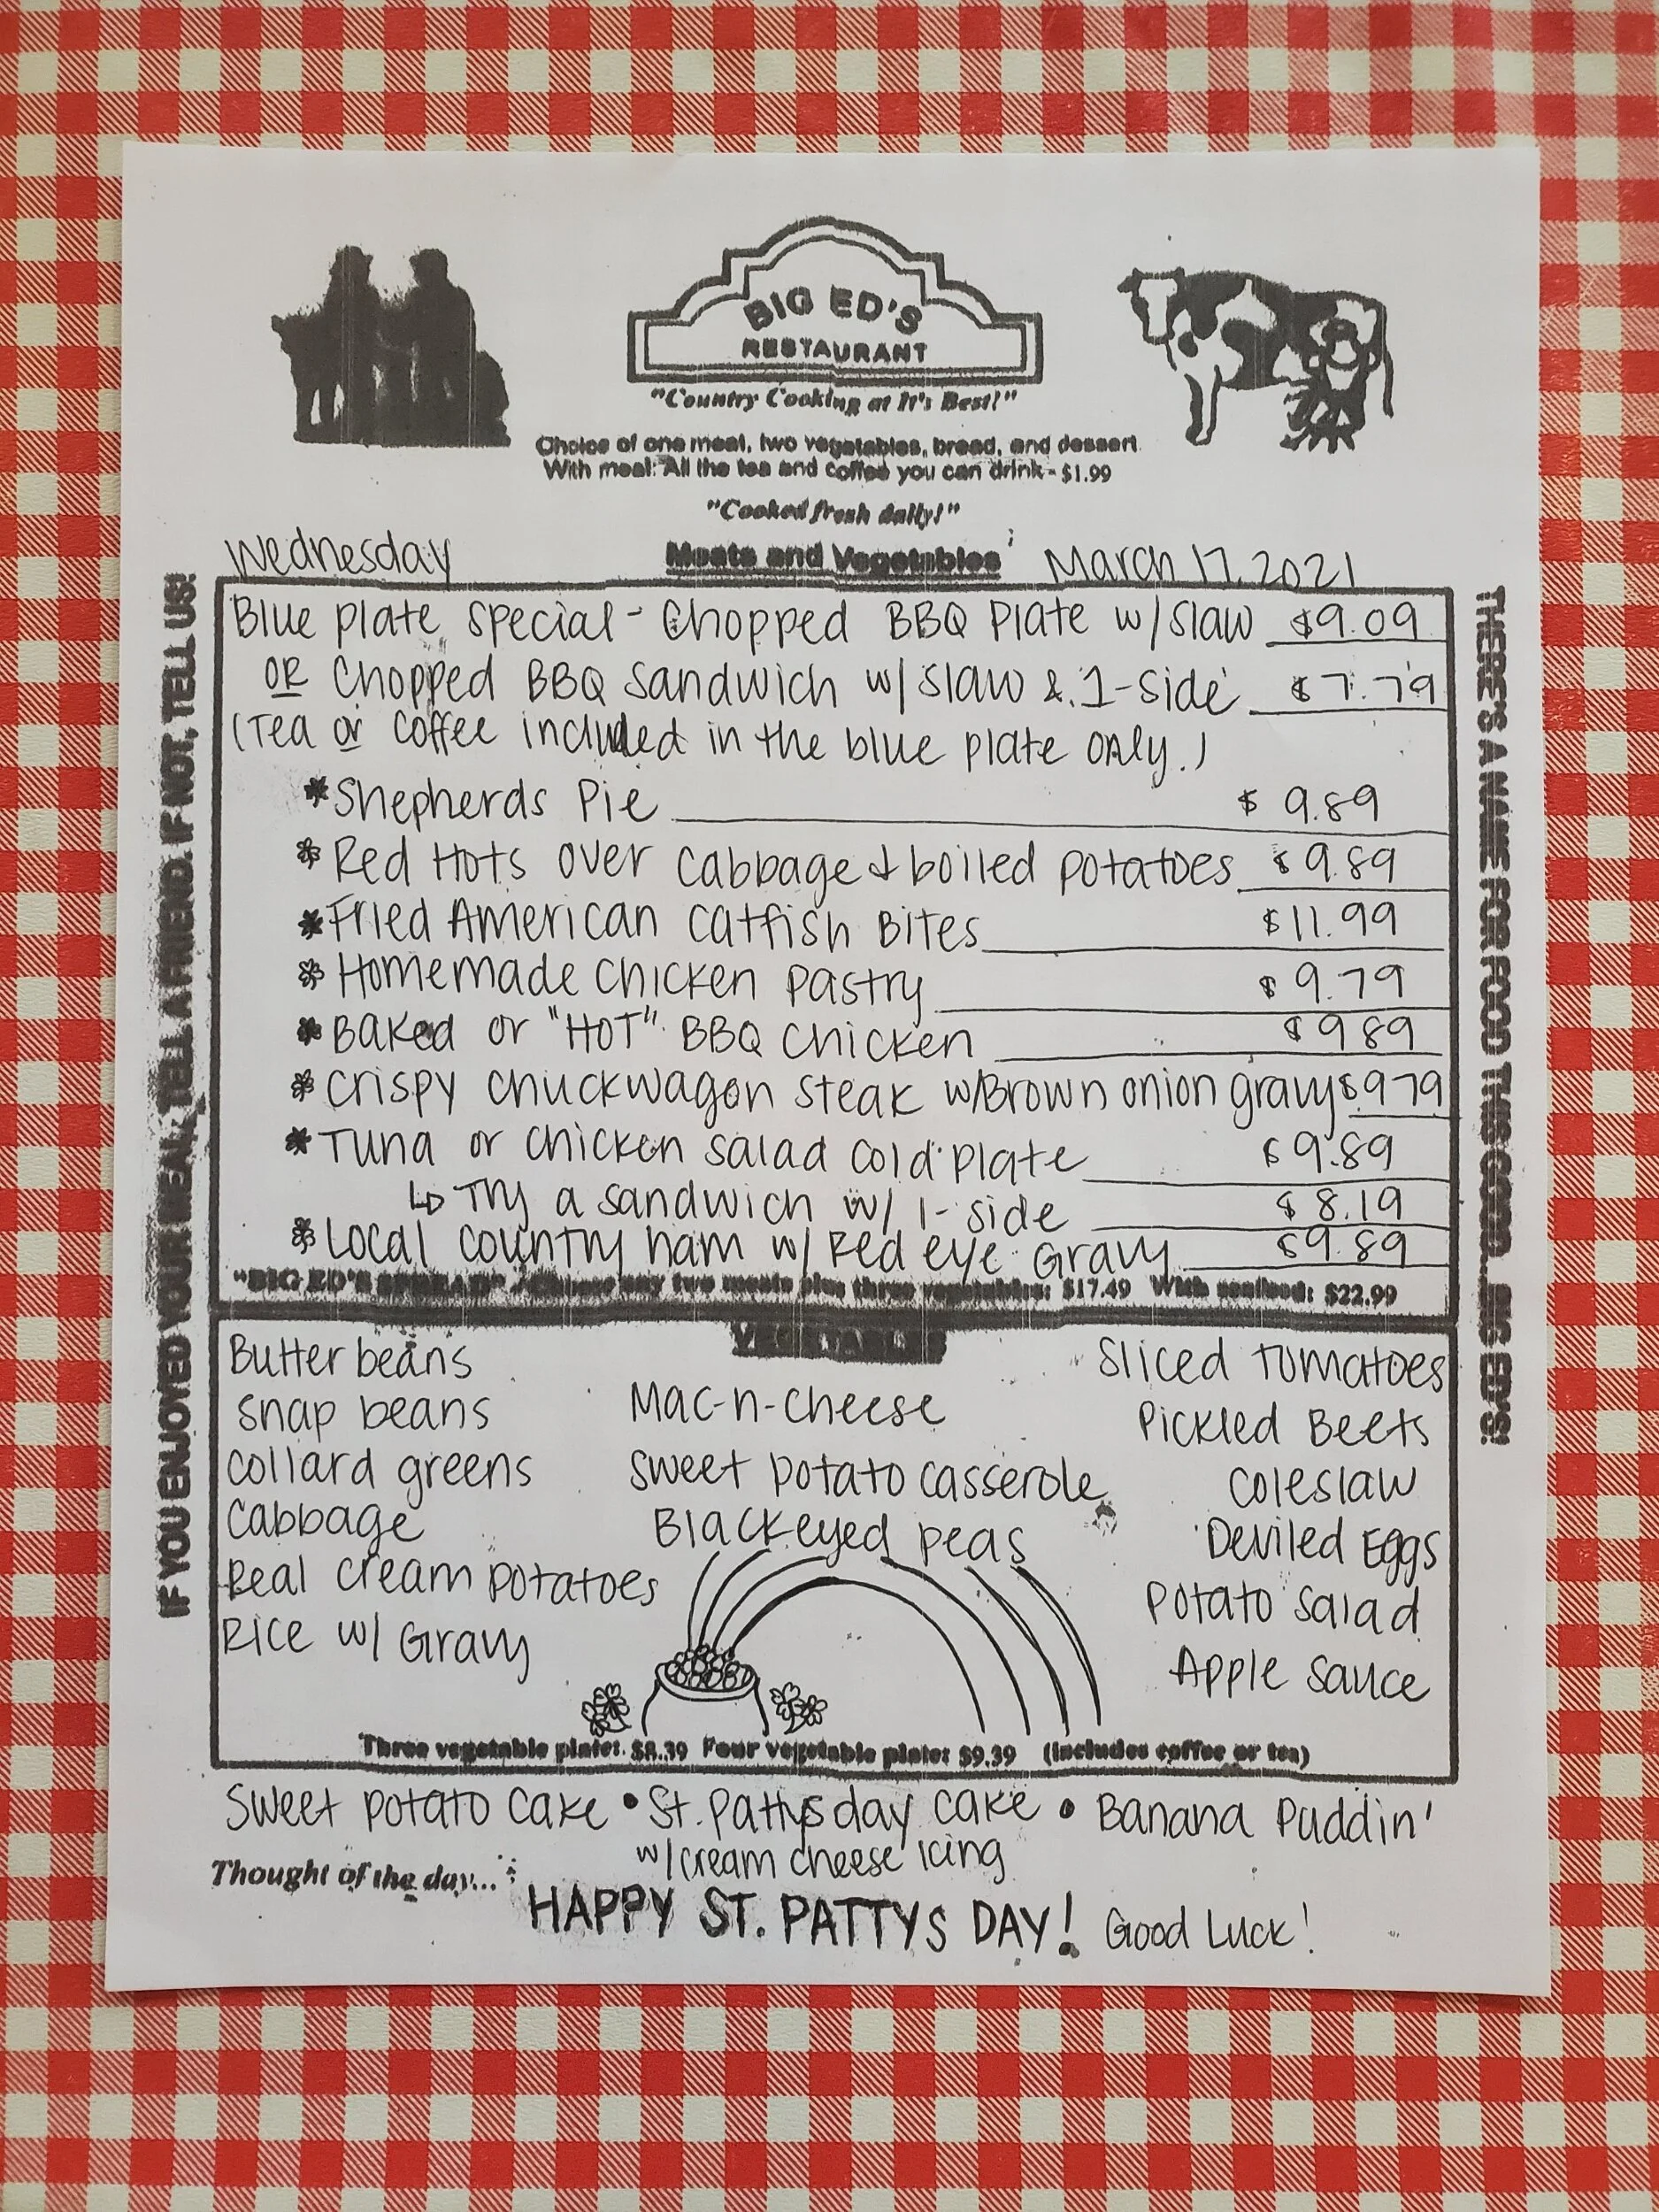 BIG ED'S
RESTAURANT
"Country Cooking at It's Best!"
Choice of one meat, two vegetables, bread, and dessert
With meal: All the tea and coffee you can drink - $1.99
"Cooked fresh daily!"
Wednesday Meats and Vegetables March 17, 2021
Blue plate special - Chopped BBQ Plate w/ slaw $9.09
OR Chopped BBQ Sandwich w/ slaw & 1-side $7.79
(Tea or coffee included in the blue plate only.)
*Shepherds Pie $9.89
*Red Hots over cabbage & boiled potatoes $9.89
*Fried American catfish Bites $11.99
*Homemade chicken pastry $9.79
*Baked or "HOT" BBQ chicken $9.89
*crispy chuckwagon steak w/Brown onion gravy $9.79
*Tuna or chicken salad cold plate $9.89
↳ Try a sandwich w/ 1-side $8.19
*Local country ham w/ Red eye Gravy $9.89
"BIG ED'S SPREAD" - Choose any two meats plus three vegetables: $17.49 With seafood: $22.99
VEGETABLES
Butter beans
snap beans
collard greens
cabbage
Real cream potatoes
Rice w/ Gravy
Mac-n-cheese
sweet potato casserole
Blackeyed peas
Sliced tomatoes
Pickled Beets
coleslaw
Deviled Eggs
potato salad
Apple sauce
Three vegetable plate: $8.39 Four vegetable plate: $9.39 (includes coffee or tea)
Sweet potato cake • St. Pattys day cake • Banana Puddin'
w/cream cheese icing
Thought of the day...
HAPPY ST. PATTYS DAY! Good Luck!
IF YOU ENJOYED YOUR MEAL, TELL A FRIEND. IF NOT, TELL US!
THERE'S A NAME FOR FOOD THIS GOOD... BIG ED'S!